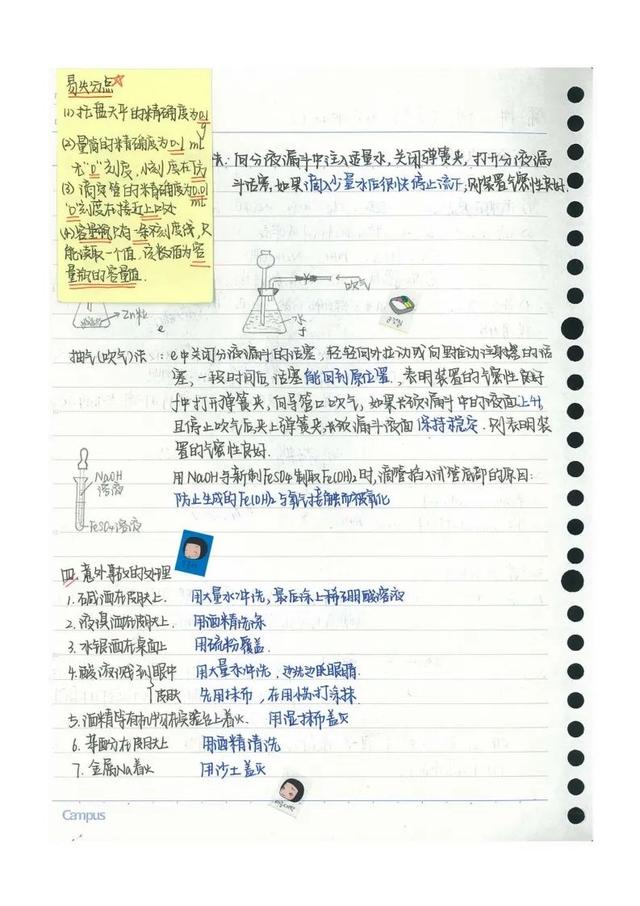 易失分点☆
(1) 托盘天平的精确度为0.1
g
(2) 量筒的精确度为0.1 mL
无"0"刻度,小刻度在下
(3) 滴定管的精确度为0.01
mL
"0"刻度在接近上口处
(4) 容量瓶只有一条刻度线,只
能读取一个值,该数值为容
量瓶的容量值.
法:向分液漏斗中注入适量水,关闭弹簧夹,打开分液漏
斗活塞,如果滴入少量水后很快停止流下,则装置气密性良好.
Zn粒
e
吹气
水
f
抽气(吹气)法:e中关闭分液漏斗的活塞,轻轻向外拉动或向里推动注射器的活
塞,一段时间后,活塞能回到原位置,表明装置的气密性良好
f中打开弹簧夹,向导管口吹气,如果长颈漏斗中的液面上升,
且停止吹气后夹上弹簧夹,长颈漏斗液面保持稳定.则表明装
置的气密性良好.
NaOH
溶液
FeSO4溶液
用NaOH与新制FeSO4制取Fe(OH)2时,滴管插入试管底部的原因:
防止生成的Fe(OH)2与氧气接触而被氧化
四.意外事故的处理
1.碱洒在皮肤上. 用大量水冲洗,最后涂上稀硼酸溶液
2.液溴洒在皮肤上. 用酒精洗涤
3.水银洒在桌面上 用硫粉覆盖.
4.酸液溅到眼中 用大量水冲洗,边洗边眨眼睛.
皮肤 先用抹布,在用
5.酒精等有机物在实验台上着火. 用湿抹布盖灭
6.苯酚沾在皮肤上 用酒精清洗
7.金属Na着火 用沙土盖灭
Campus